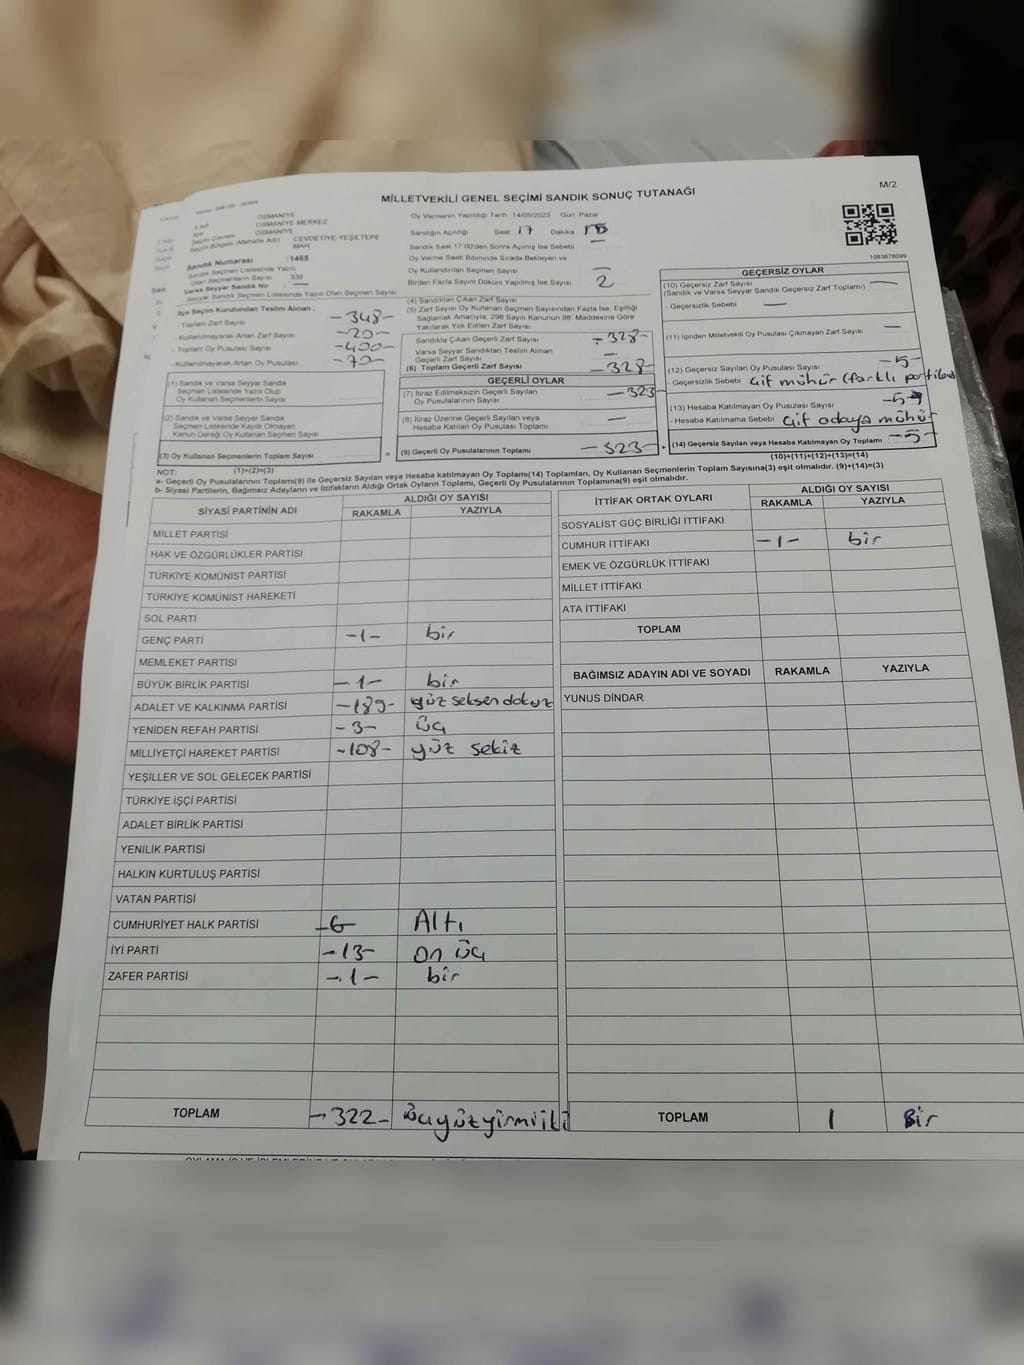 MİLLETVEKİLİ GENEL SEÇİMİ SANDIK SONUÇ TUTANAĞI
M/2
OSMANİYE
OSMANİYE MERKEZ
Seçim Bölgesi (Mahalle Adı) CEVDETİYE-YEŞİLTEPE MAH
Sandık Numarası :1465
Sandık Seçmen Listesinde Yazılı
Olan Seçmenlerin Sayısı 339
Varsa Seyyar Sandık No
Seyyar Sandık Seçmen Listesinde Yazılı Olan Seçmen Sayısı
İlçe Seçim Kurulundan Teslim Alınan ;
- Toplam Zarf Sayısı -348-
- Kullanılmayarak Artan Zarf Sayısı -20-
- Toplam Oy Pusulası Sayısı -400-
- Kullanılmayarak Artan Oy Pusulası -70-
(1) Sandık ve Varsa Seyyar Sandık
Seçmen Listesinde Yazılı Olup
Oy Kullanan Seçmenlerin Sayısı
(2) Sandık ve Varsa Seyyar Sandık
Seçmen Listesinde Kayıtlı Olmayan
Kanun Gereği Oy Kullanan Seçmen Sayısı
(3) Oy Kullanan Seçmenlerin Toplam Sayısı
Oy Vermenin Yapıldığı Tarih 14/05/2023 Gün: Pazar
Sandığın Açıldığı Saat 17 Dakika
Sandık Saat 17:00'den Sonra Açılmış İse Sebebi
Oy Verme Saati Bitiminde Sırada Bekleyen ve
Oy Kullandırılan Seçmen Sayısı
Birden Fazla Sayım Döküm Yapılmış İse Sayısı 2
(4) Sandıktan Çıkan Zarf Sayısı
(5) Zarf Sayısı Oy Kullanan Seçmen Sayısından Fazla İse, Eşitliği
Sağlamak Amacıyla, 298 Sayılı Kanunun 98. Maddesine Göre
Yakılarak Yok Edilen Zarf Sayısı
Sandıkta Çıkan Geçerli Zarf Sayısı -328-
Varsa Seyyar Sandıktan Teslim Alınan
Geçerli Zarf Sayısı
(6) Toplam Geçerli Zarf Sayısı -328-
GEÇERLİ OYLAR
(7) İtiraz Edilmeksizin Geçerli Sayılan
Oy Pusulalarının Sayısı -323-
(8) İtiraz Üzerine Geçerli Sayılan veya
Hesaba Katılan Oy Pusulası Toplamı
= (9) Geçerli Oy Pusulalarının Toplamı -323-
1083678099
GEÇERSİZ OYLAR
(10) Geçersiz Zarf Sayısı
(Sandık ve Varsa Seyyar Sandık Geçersiz Zarf Toplamı)
- Geçersizlik Sebebi
(11) İçinden Milletvekili Oy Pusulası Çıkmayan Zarf Sayısı
(12) Geçersiz Sayılan Oy Pusulası Sayısı -5-
- Geçersizlik Sebebi Çif mühür (farklı
(13) Hesaba Katılmayan Oy Pusulası Sayısı
- Hesaba Katılmama Sebebi Çif odaya mühür
+ (14) Geçersiz Sayılan veya Hesaba Katılmayan Oy Toplamı -5-
NOT: (1)+(2)=(3)
(10)+(11)+(12)+(13)=(14)
a- Geçerli Oy Pusulalarının Toplamı(9) ile Geçersiz Sayılan veya Hesaba katılmayan Oy Toplamı(14) Toplamları, Oy Kullanan Seçmenlerin Toplam Sayısına(3) eşit olmalıdır. (9)+(14)=(3)
b- Siyasi Partilerin, Bağımsız Adayların ve İttifakların Aldığı Ortak Oyların Toplamı, Geçerli Oy Pusulalarının Toplamına(9) eşit olmalıdır.
SİYASİ PARTİNİN ADI
ALDIĞI OY SAYISI
RAKAMLA YAZIYLA
MİLLET PARTİSİ
HAK VE ÖZGÜRLÜKLER PARTİSİ
TÜRKİYE KOMÜNİST PARTİSİ
TÜRKİYE KOMÜNİST HAREKETİ
SOL PARTİ
GENÇ PARTİ -1- bir
MEMLEKET PARTİSİ
BÜYÜK BİRLİK PARTİSİ -1- bir
ADALET VE KALKINMA PARTİSİ -189- yüz seksen dokuz
YENİDEN REFAH PARTİSİ -3- üç
MİLLİYETÇİ HAREKET PARTİSİ -108- yüz sekiz
YEŞİLLER VE SOL GELECEK PARTİSİ
TÜRKİYE İŞÇİ PARTİSİ
ADALET BİRLİK PARTİSİ
YENİLİK PARTİSİ
HALKIN KURTULUŞ PARTİSİ
VATAN PARTİSİ
CUMHURİYET HALK PARTİSİ -6- Altı
İYİ PARTİ -13- on üç
ZAFER PARTİSİ -1- bir
TOPLAM -322- üçyüzyirmiiki
İTTİFAK ORTAK OYLARI
ALDIĞI OY SAYISI
RAKAMLA YAZIYLA
SOSYALİST GÜÇ BİRLİĞİ İTTİFAKI
CUMHUR İTTİFAKI -1- bir
EMEK VE ÖZGÜRLÜK İTTİFAKI
MİLLET İTTİFAKI
ATA İTTİFAKI
TOPLAM
BAĞIMSIZ ADAYIN ADI VE SOYADI RAKAMLA YAZIYLA
YUNUS DİNDAR
TOPLAM 1 Bir